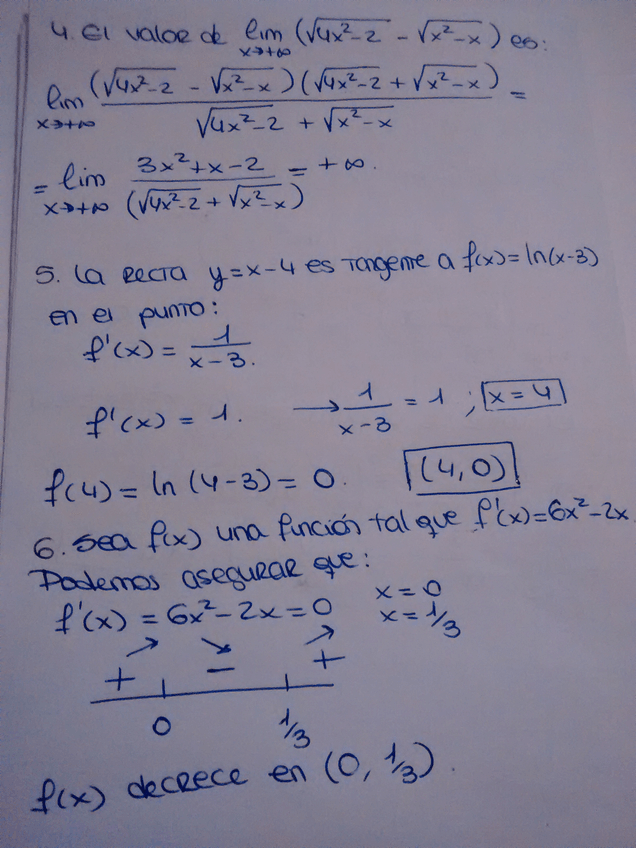 4. El valor de lim x→+∞ (√4x²-2 - √x²-x) es:
lim x→+∞ (√4x²-2 - √x²-x)(√4x²-2 + √x²-x) / √4x²-2 + √x²-x =
= lim x→+∞ 3x²+x-2 / (√4x²-2 + √x²-x) = +∞.
5. La recta y=x-4 es tangente a f(x)=ln(x-3)
en el punto:
f'(x) = 1/x-3.
f'(x) = 1. → 1/x-3 = 1 ; x=4
f(4) = ln (4-3) = 0. (4,0)
6. Sea f(x) una función tal que f'(x)=6x²-2x.
Podemos asegurar que:
f'(x) = 6x²-2x=0 x=0
x=1/3
+ - +
0 1/3
f(x) decrece en (0, 1/3).